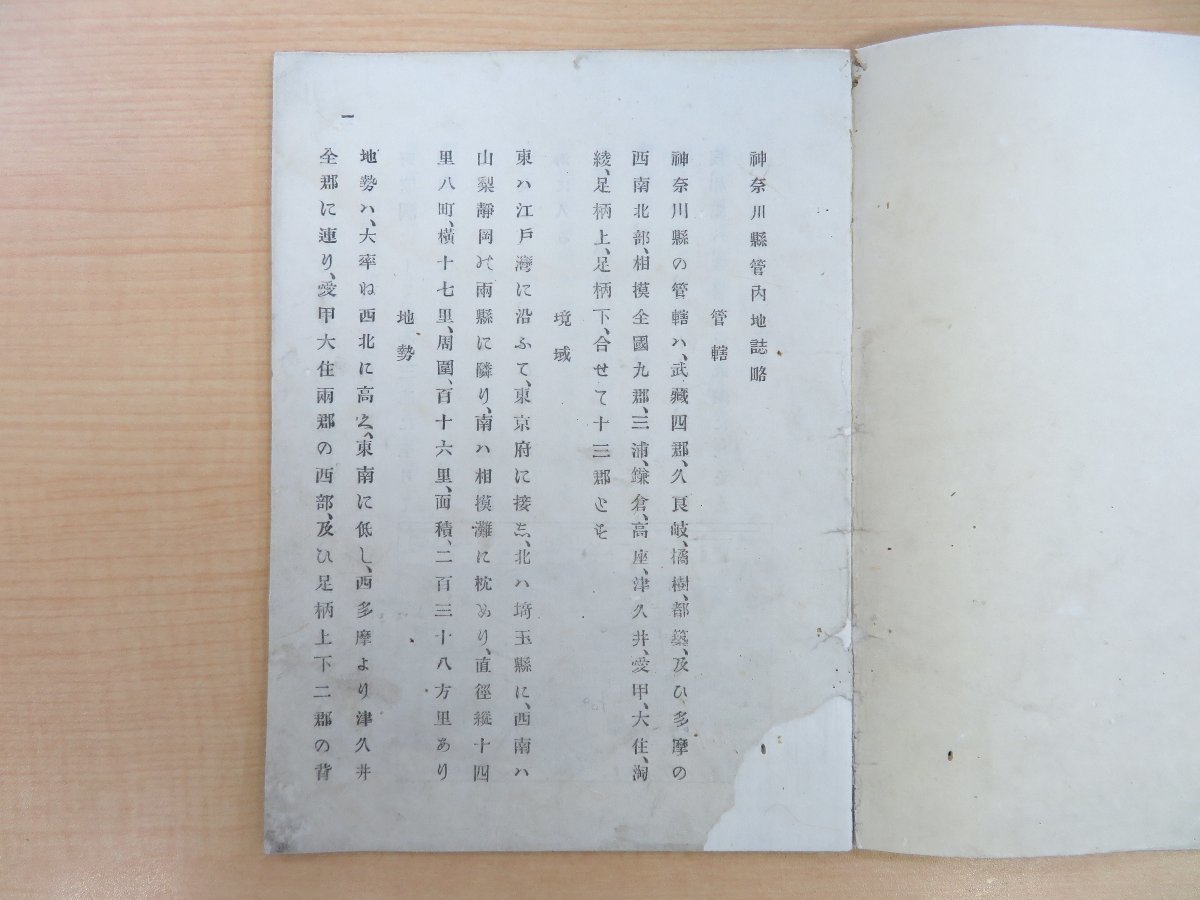 神奈川縣管內地誌略
管轄
神奈川縣の管轄ハ、武藏四郡、久良岐、橘樹、都築、及ひ多摩の
西南北部、相摸全國九郡、三浦、鎌倉、高座、津久井、愛甲、大住、淘
綾、足柄上、足柄下、合せて十三郡とす
境域
東ハ江戶灣に沿ふて、東京府に接し、北ハ埼玉縣に、西南ハ
山梨靜岡の兩縣に隣り、南ハ相摸灘に枕めり、直徑縱十四
里八町、橫十七里、周圍、百十六里、面積、二百三十八方里あり
地勢
地勢ハ、大率ね西北に高く、東南に低し、西多摩より津久井
全郡に連り、愛甲大住兩郡の西部、及ひ足柄上下二郡の背
一